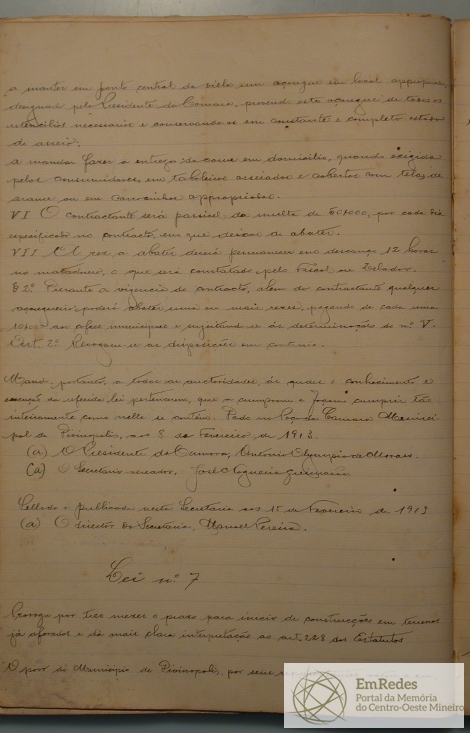 a manter em ponto central da villa um açougue em local appropriado,
designado pelo Presidente da Camara, provendo este açougue de todos os
utensilios necessarios e conservando-os em constante e completo estado
de asseio;
a mandar fazer a entrega da carne em domicilio, quando exigida
pelos consumidores, em taboleiros asseiados e cobertos com telas de
arame ou em carrocinhas appropriadas.
VI O contractante será passivel da multa de 50$000, por cada dia
especificado no contracto, em que deixar de abater.
VII A rez a abater deverá permanecer em descanço 12 horas
no matadouro, o que será constatado pelo Fiscal ou Zelador.
§ 2º Durante a vigencia do contracto, alem do contractante qualquer
açougueiro poderá abater uma ou mais rezes, pagando de cada uma
10$000 aos cofres municipaes e sujeitando-se ás determinações do nº V.
Art. 2º Revogam-se as disposições em contrario.
Mando, portanto, a todas as auctoridades, ás quaes o conhecimento e
execução da referida lei pertencerem, que a cumpram e façam cumprir tão
inteiramente como nella se contém. Paço da Camara Munici
pal de Divinopolis, aos 8 de Fevereiro de 1913.
(a) O Presidente da Camara, Antonio Olympio de Moraes.
(a) O Secretario vereador, José Nogueira
Sellada e publicada nesta Secretaria aos 15 de Fevereiro de 1913
(a) O Director da Secretaria, Manoel Pereira.
Lei nº 7
Proroga por tres mezes o praso para inicio de construcções em terrenos
já aforados e dá mais clara interpretação ao art. 228 dos Estatutos
O povo do Municipio de Divinopolis, por seus
EmRedes
Portal da Memória
do Centro-Oeste Mineiro